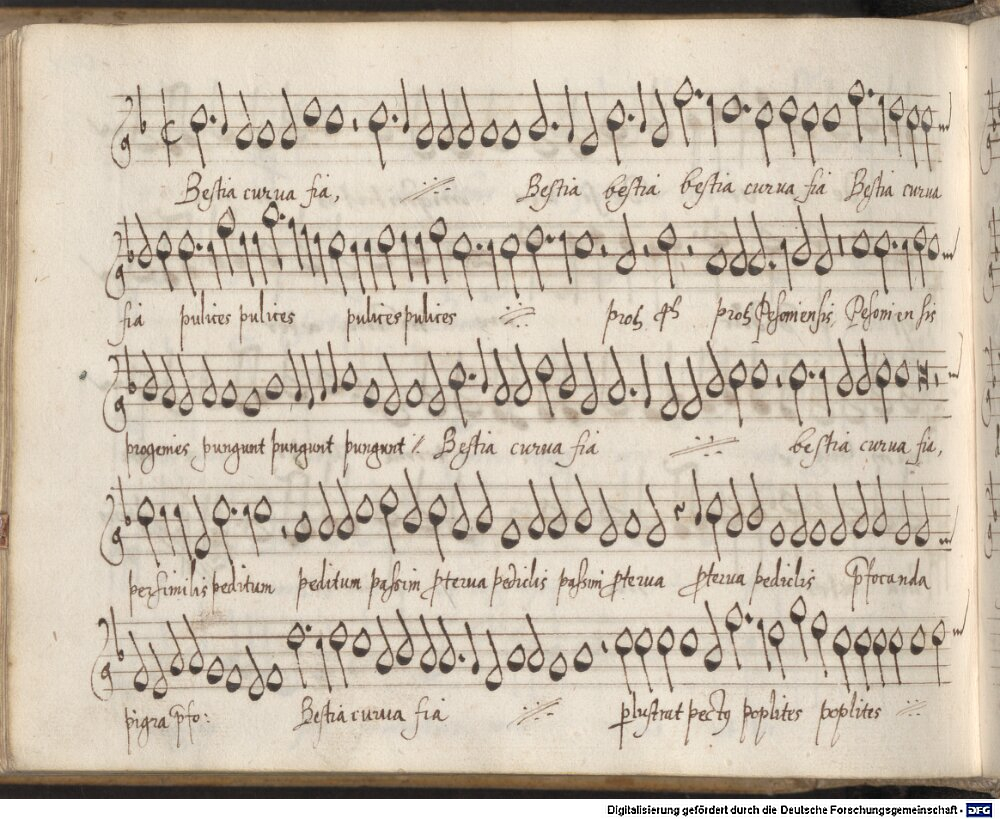 Bestia curua fia, Bestia bestia bestia curua fia Bestia curua
fia pulices pulices pulices pulices proh proh Pesomiensis, Pesomiensis
progenies pungunt pungunt pungunt Bestia curua fia bestia curua fia,
persimilis peditum peditum passim proterua pediclis passim proterua proterua pediclis
pigra Bestia curua fia plustrat poplites poplites
Digitalisierung gefördert durch die Deutsche Forschungsgemeinschaft - DFG